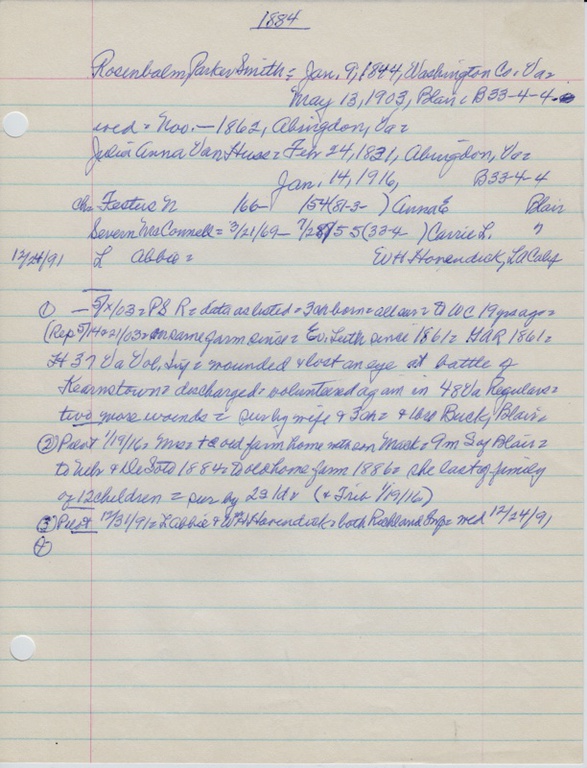 1884
Rosenbalm Parker Smith = Jan. 9, 1844, Washington Co. Va =
May 13, 1903, Blair B33-4-4
wed = Nov. — 1862, Abingdon, Va =
Julia Anna Van Huss = Feb 24, 1821, Abingdon, Va =
Jan. 14, 1916, B33-4-4
ch = Festus N 166- 154(81-3- ) Anna E Blair
Severn McConnell = 3/21/69 — 7/28/55 (33-4 ) Carrie L. "
12/24/91 L Abbie = W H Hovendick, LA Calif
① — 5/ /03 = P S R = data as listed = 3 ch born = all sur = to WC 19 yrs ago =
(Rep 5/14 & 21/03 = on same farm since = Ev. Luth since 1861 = GAR 1861 =
H 37 Va Vol. Inf = wounded & lost an eye at battle of
Kearnstown = discharged = volunteered again in 48 Va Regulars =
two more wounds = sur by wife & 3 ch = & bro Buck, Blair =
② Pilot 1/19/16 = Mrs = at old farm home with son Mack = 9m S of Blair =
to Nebr & DeSoto 1884 = to old home farm 1886 = she last of family
of 12 children = sur by 2s 1d = (& Trib 1/19/16)
③ Pilot 12/31/91 = L Abbie & W H Hovendick = both Richland Twp = wed 12/24/91
④